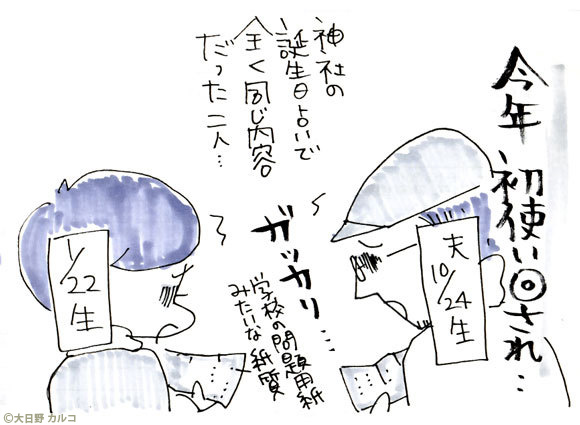 今年初使い回され‥
神社の
誕生日占いで
全く同じ内容
だった二人…
ガッカリ…
学校の問題用紙
みたいな紙質
夫
10/24
生
1/22
生
©大日野 カルコ